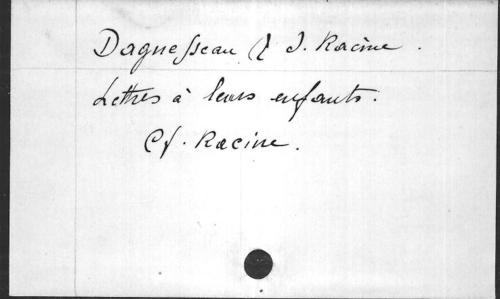 Daguesseau & J. Racine.
Lettres à leurs enfants.
Cf. Racine.